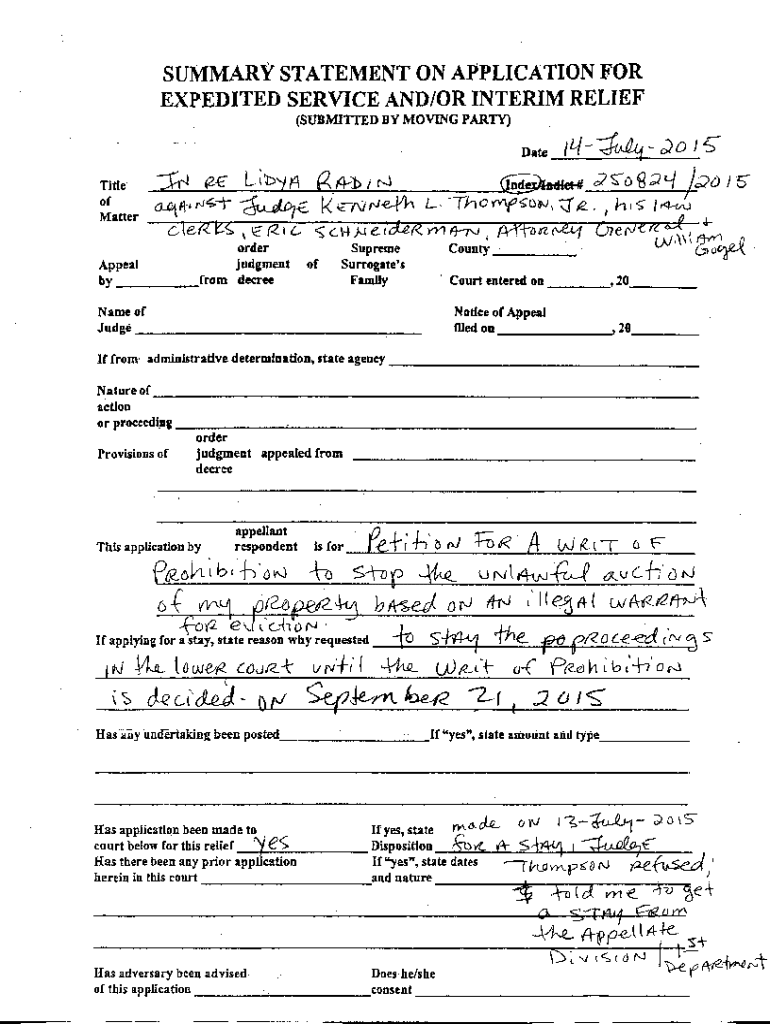 SUMMARY STATEMENT ON APPLICATION FOR
EXPEDITED SERVICE AND/OR INTERIM RELIEF
(SUBMITTED BY MOVING PARTY)
Date 14-July-2015
Title IN RE LIDYA RADIN Index/Indict# 250824/2015
of against Judge KENNETH L. THOMPSON, JR., his law
Matter clerks, ERIC SCHNEIDERMAN, Attorney General +
William
Gogel
order Supreme County
Appeal judgment of Surrogate's
by from decree Family Court entered on , 20
Name of Notice of Appeal
Judge filed on , 20
If from administrative determination, state agency
Nature of
action
or proceeding
order
Provisions of judgment appealed from
decree
appellant
This application by respondent is for Petition FOR A WRIT OF
Prohibition to stop the unlawful auction
of my property based on AN illegal WARRANT
for eviction.
If applying for a stay, state reason why requested to stay the po proceedings
IN the lower court until the Writ of Prohibition
is decided - ON September 21, 2015
Has any undertaking been posted If "yes", state amount and type
Has application been made to If yes, state made on 13-July-2015
court below for this relief yes Disposition for A stay, Judge
Has there been any prior application If "yes", state dates Thompson refused,
herein in this court and nature $ told me to get
a STAY FROM
the Appellate
Division 1st
Department
Has adversary been advised Does he/she
of this application consent